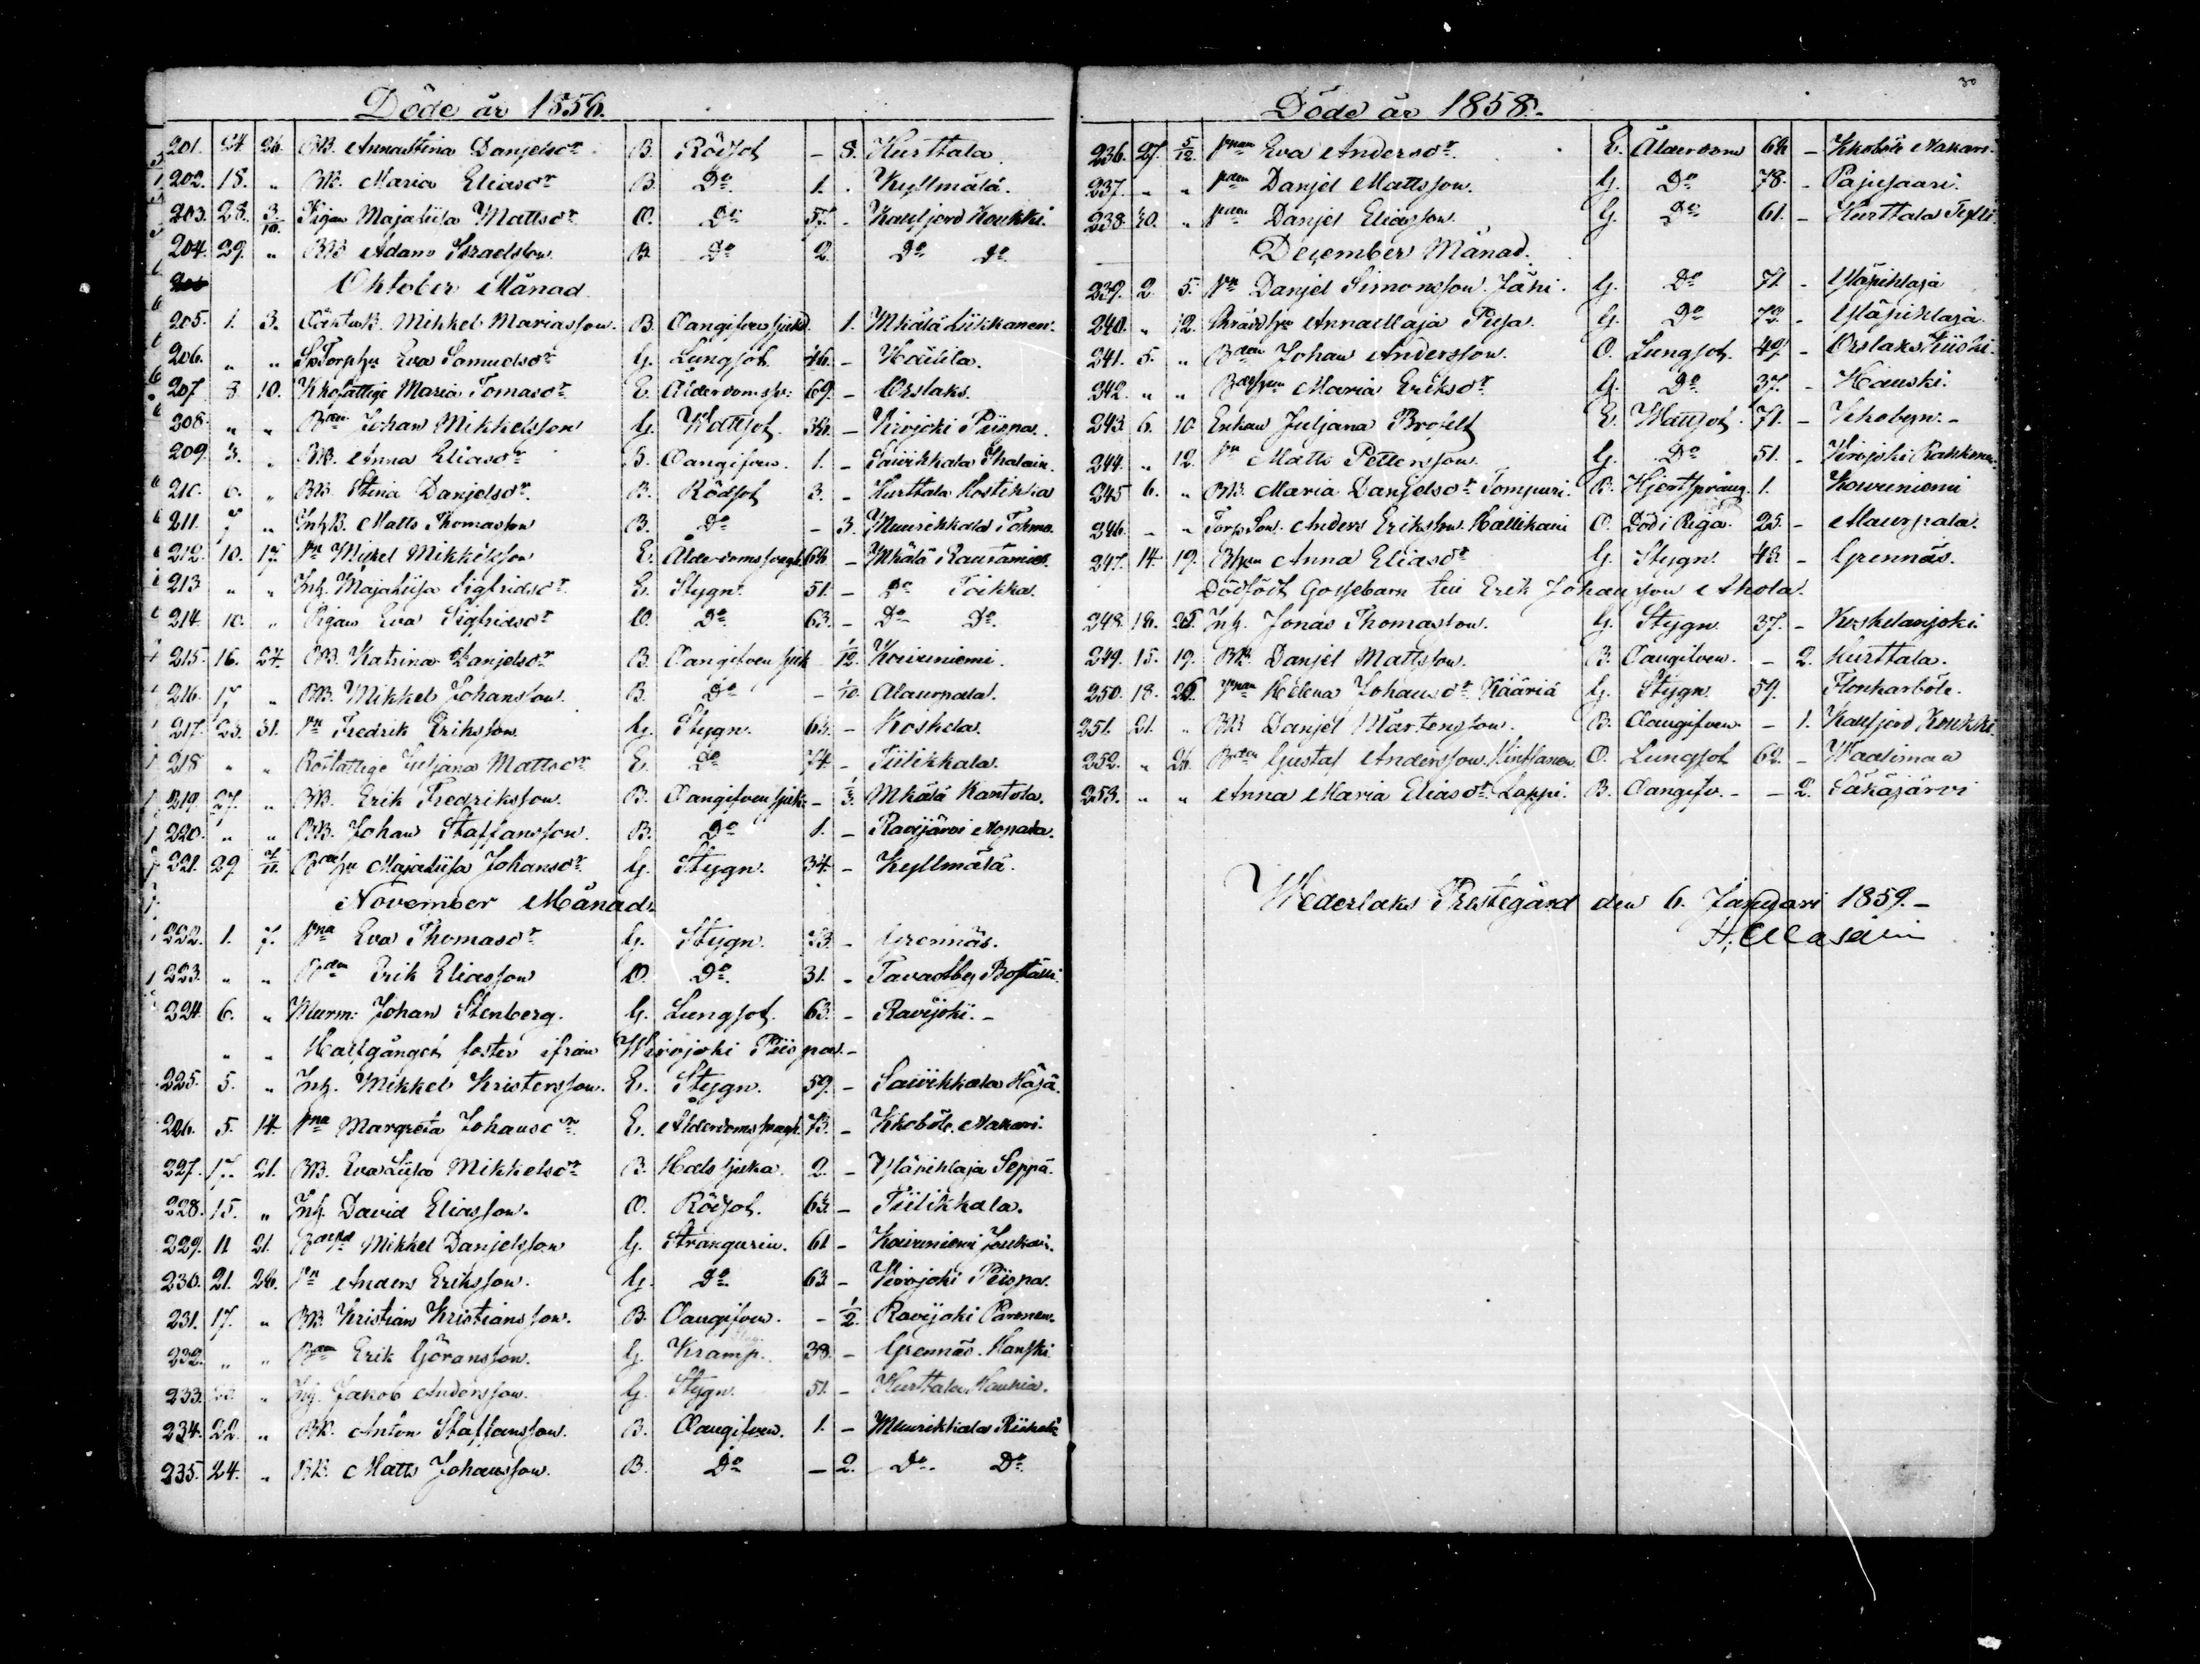 Döde år 1858.
201. 24. 26. BB. Anna Stina Danjelsdr. B. Rödsot – 8. Kurttala.
202. 18. " BB. Maria Eliasdr. B. Do. 1. . Kyllmälä.
203. 28. 3/10. Pigan Majaliisa Mattsdr. O. Do. 57. – Kallfjord Koukki.
204. 29. " BB Adam Israelsson B. Do 2. Do Do
Oktober Månad
205. 1. 3. Mikkel Mariasson. B. Oangifven sjukd. 1. Mhälä Liikkanen.
206. " " Eva Samuelsdr G. Lungsot. 46. –
207. 8 10. Khofattige Maria Tomasdr. E. Ålderdomssv: 69. – Orslaks.
208. " " Bden Johan Mikkelsson G. Wattsot. – Virojoki Piispa.
209. 3. " BB. Anna Eliasdr B. Oangifven. 1. – Säivikkala
210. 6. " BB. Stina Danjelsdr. B. Rödsot 3. – Kurttala Kostikla
211. 7 " Inh.B. Matts Thomasson B. Do – 3. Muurikkala
212. 10. 17. Pn Mikel Mikkelsson E. Ålderdomssvagh. 64 – Mhälä
213 " " Inh. Majaliisa Sigfridsdr. E. Stygn. 51. – Do Toikka.
214. 10. " Pigan Eva Sigfridsdr O. Do. 63. – Do Do.
215. 16. 24. BB. Katrina Danjelsdr B. Oangifven sjuk 1/12. Kouvuniemi.
216. 17 " BB. Mikkel Johansson. B. Do – 1/10. Alaurpala.
217. 23. 31. Pn Fredrik Eriksson. G. Stygn. 63. – Koskela.
218 " " Rotfattige Juljana Mattsdr E. Do 74. – Tiilikkala.
219. 27. " BB. Erik Fredriksson. B. Oangifven sjuk. – 1/3. Mhälä Kantola.
220. " " BB. Johan Staffansson. B. Do 1. – Ravijärvi
221. 29. 7/11. Majaliisa Johansdr. G. Stygn. 34. – Kyllmälä.
November Månad.
222. 1. 7. Pna Eva Thomasdr G. Stygn. 73. – Grennäs.
223. " " Bden Erik Eliasson O. Do. 31. – Tavastby
224. 6. " Murm: Johan Stenberg. G. Lungsot. 63. – Ravijoki. –
" " Halfgånget foster ifrån Wirojoki Piispa. –
225. 5. " Inh. Mikkel Kristersson. E. Stygn. 59. – Säivikkala
226. 5. 14. Pna Margreta Johansdr. E. Ålderdomssvagh. 73. – Kkoböle Nakari.
227. 17. 21. BB. Eva Liisa Mikkelsdr B. Halssjuka. 2. – Yläpihlaja Seppä.
228. 15. " Inh. David Eliasson. O. Rödsot. 63. – Tiilikkala.
229. 11 21. Mikkel Danjelsson G. Strangurin. 61 – Kouvuniemi
230. 21. 26. Pn Anders Eriksson. G. Do. 63 – Virojoki Piispa.
231. 17. " BB Kristian Kristiansson. B. Oangifven. – 1/2. Ravijoki
232. " " Bden Erik Göransson. G. Kramp. 38. – Grennäs. Hanski
233. " Inh. Jakob Andersson. G. Stygn. 51. – Kurttala
234. 22. " BB. Anton Staffansson. B. Oangifven. 1. – Muurikkala
235. 24. " BB. Matts Johansson. B. Do – 2. Do. Do.
30
Döde år 1858.
236. 27. 5/12. Pnan Eva Andersdr. E. Ålderdom 64 – Kkoböle Nakari.
237. " " Pden Danjel Mattsson. G. Do 78. – Pajusaari.
238. 30. " Pden Danjel Eliasson. G. Do 61. – Kurttala
December Månad.
239. 2. 5. Pn Danjel Simonsson Jäni. G. Do 71. – Yläpihlaja
240. " 12. Anna Maja Piesa. G. Do 73. – Yläpihlaja.
241. 5. " Bden Johan Andersson. O. Lungsot. 49. – Orslaks
242. " " Maria Eriksdr G. Do 37. – Hanski.
243. 6. 10. Enkan Juljana Brofelt E. Wattsot. 71. – Kkobyn. –
244. " 12. Pn Matts Pettersson. G. Do 51. – Virojoki
245 6. " BB. Maria Danjelsdr Tompuri. B. Hjertspräng. 1. Kouvuniemi
246. – " Torp.Son. Anders Eriksson Hällikäri O. Död i Riga. 25. – Alaurpala.
247. 14. 19. Anna Eliasdr G. Stygn. 43. – Grennäs.
Dödfödt Gossebarn till Erik Johansson Ahola.
248. 16. 26. Inh. Jonas Thomasson. G. Stygn. 37. – Koskelanjoki.
249. 15. 19. BB. Danjel Mattsson. B. Oangifven. – 2. Kurttala.
250. 18. 26. Pnan Helena Johansdr Kääriä G. Stygn 59. Flonkarböle.
251. 21. " BB Danjel Mårtensson. B. Oangifven. – 1. Kallfjord Koukki.
252. " 26. Bden Gustaf Andersson O. Lungsot 62. – Waalimaa
253. " " Anna Maria Eliasdr Lappi. B. Oangifv. – – 2. Säkäjärvi
Wederlaks Prestegård den 6. Januari 1859. –